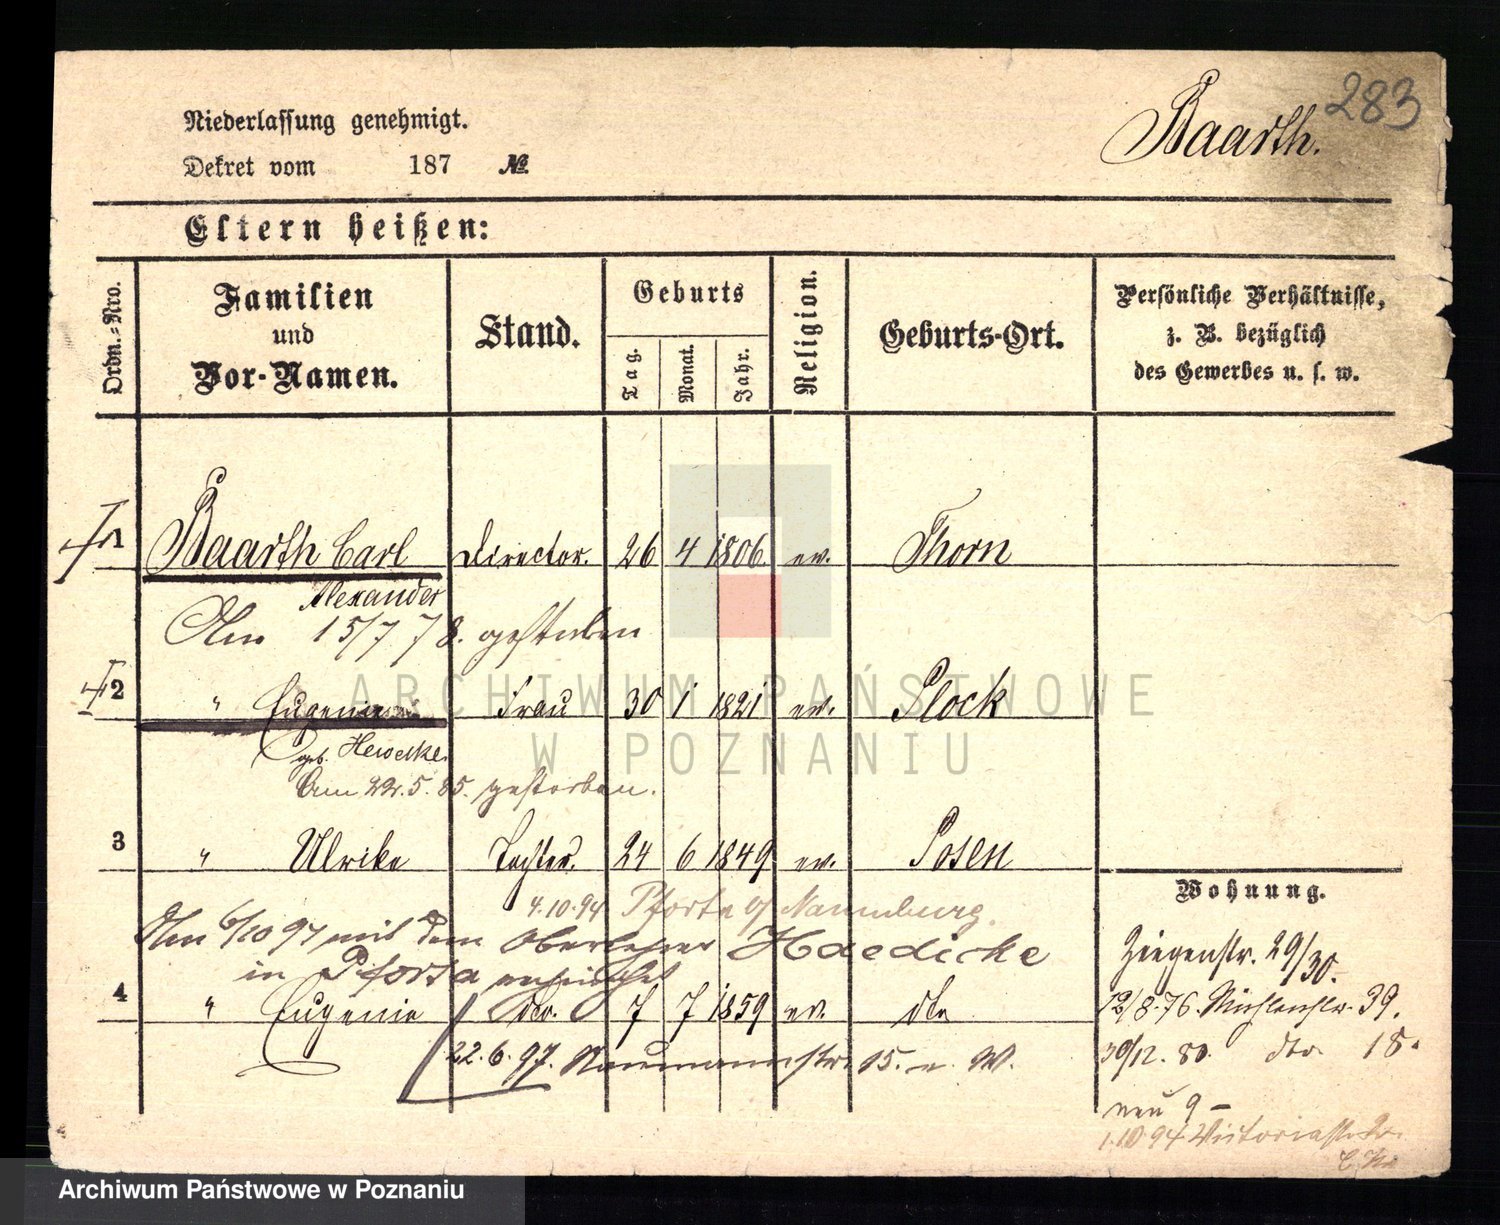 283
Niederlassung genehmigt.
Baarth.
Dekret vom 187 №
Eltern heißen:
Ordn.-Nro.
Familien
und
Vor-Namen.
Stand.
Geburts
Tag.
Monat.
Jahr.
Religion.
Geburts-Ort.
Persönliche Verhältnisse,
z. B. bezüglich
des Gewerbes u. s. w.
1 Baarth Carl Director. 26 4 1806. ev. Thorn
Alexander
Am 15/7 78. gestorben
2 " Eugenie Frau 30 1 1821 ev. Plock
geb. Hewelke.
Am 22.5.85. gestorben.
3 " Ulrike Tochter. 24 6 1849 ev. Posen
Wohnung.
4.10.94 Pforta Naumburg.
Am 6/10 97 mit dem Oberlehrer Haedicke
in Pforta
4 " Eugenie dto. 7 7 1859 ev. dto
22.6.97. Naumannstr. 15. n. W.
Ziegenstr. 29/30.
12/8.76. Mühlenstr. 39.
30/12. 80. dto 18.
neu 9 –
1.10.94 Victoriastr.
ARCHIWUM PAŃSTWOWE
W POZNANIU
Archiwum Państwowe w Poznaniu